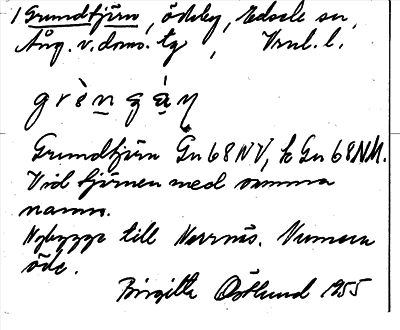 1 Grundtjärn, ödeby, Edsele sn,
Ång. v. doms. tg, Vnrl. l.
grèn ǥá̱ṇ
Grundtjärn Gn 68 NV, to Gn 68 NM.
Vid tjärnen med samma
namn.
Nybygge till Norrnäs. Numera
öde.
Birgitta Östlund 1955